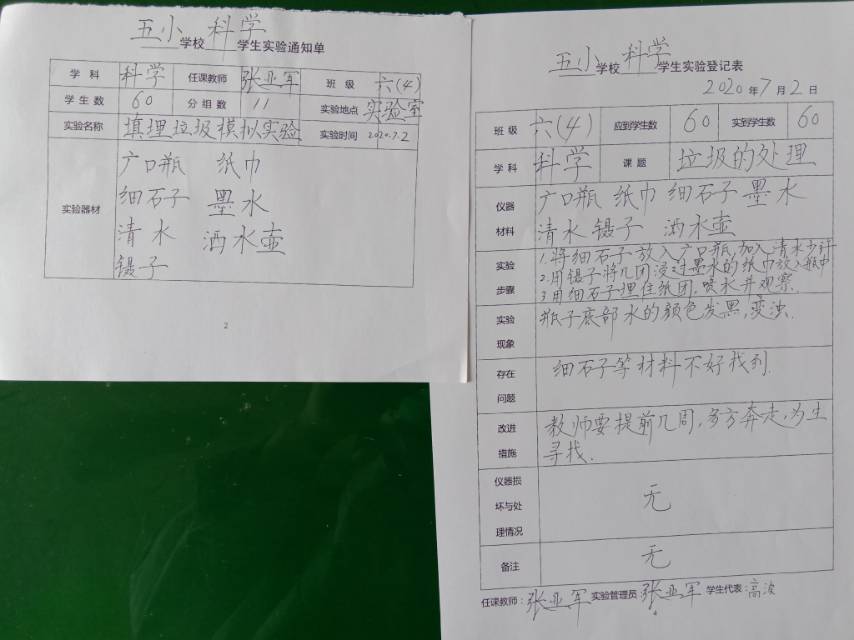 五小学校科学学生实验通知单
学科 科学 任课教师 张亚军 班级 六(4)
学生数 60 分组数 11 实验地点 实验室
实验名称 填埋垃圾模拟实验 实验时间 2020.7.2
实验器材
广口瓶 纸巾
细石子 墨水
清水 洒水壶
镊子
2
五小学校科学学生实验登记表
2020年7月2日
班级 六(4) 应到学生数 60 实到学生数 60
学科 科学 课题 垃圾的处理
仪器材料
广口瓶 纸巾 细石子 墨水
清水 镊子 洒水壶
实验步骤
1.将细石子放入广口瓶,加入清水少许
2.用镊子将几团浸过墨水的纸巾放入瓶中
3.用细石子埋住纸团,喷水并观察.
实验现象
瓶子底部水的颜色发黑,变浊.
存在问题
细石子等材料不好找到.
改进措施
教师要提前几周,多方奔走,为生
寻找.
仪器损坏与处理情况
无
备注 无
任课教师:张亚军 实验管理员:张亚军 学生代表:高波